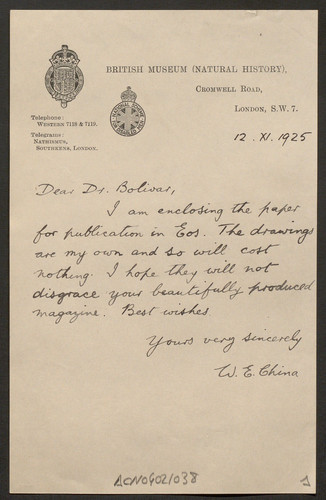 BRITISH MUSEUM (NATURAL HISTORY),
CROMWELL ROAD,
LONDON, S.W. 7.
Telephone:
WESTERN 7118 & 7119.
Telegrams:
NATHISMUS,
SOUTHKENS, LONDON.
12. XI. 1925
Dear Dr. Bolivar,
I am enclosing the paper
for publication in Eos. The drawings
are my own and so will cost
nothing. I hope they will not
disgrace your beautifully produced
magazine. Best wishes
Yours very sincerely
W. E. China
ACN0402/038